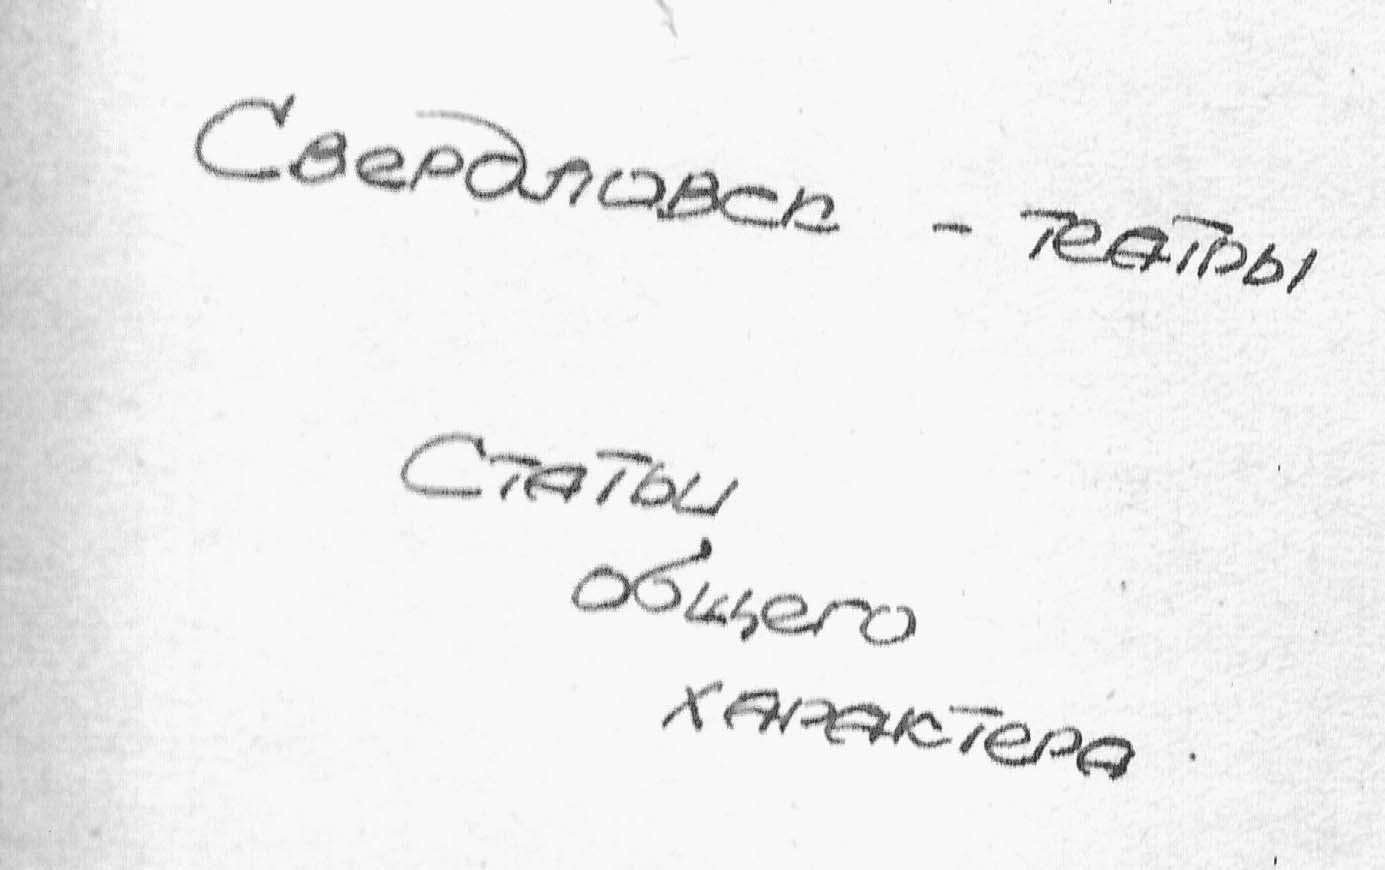 Свердловск - театры
Статьи
общего
характера.